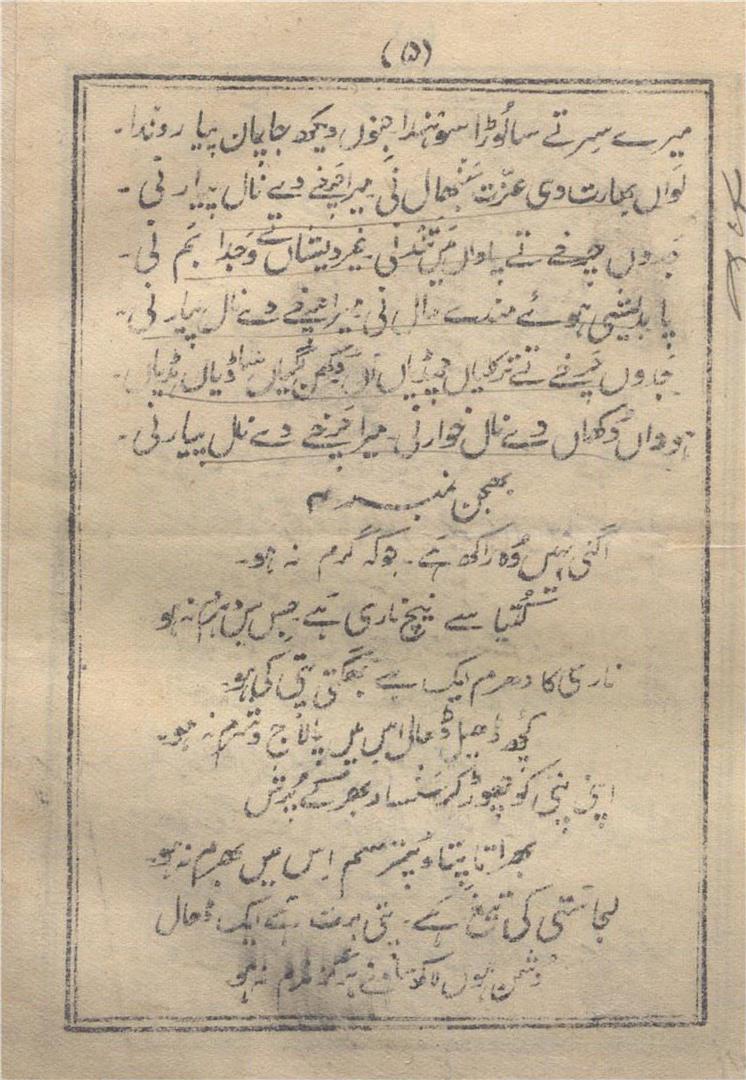 (۵)
میرے سر تے سالُوڑا سوہندا جنوں دیکھ جاپان پیا روندا۔
لواں بھارت دی عزّت سنبھال نی میرا چرخے دے نال پیار نی ۔
جدوں چرخے تے پاواں میں تند نی ۔ غیر دیشاں تے وجدا بم نی ۔
پا بدیشی ہوئے مندے حال نی میرا چرخے دے نال پیار نی ۔
جدوں چرخے تے ترکلیاں ساڈیاں ہڈیاں ۔
ہوواں دکھاں دے نال خوار نی ۔ میرا چرخے دے نال پیار نی ۔
بھجن نمبر ۴
اگنی نہیں وُہ راکھ ہَے ۔ جوکہ گرم نہ ہو۔
کُتیا سے نیچ ناری ہَے جس میں شرم نہ ہو
ناری کا دھرم ایک ہے بھگتی پتی کی ہو۔
کچھ ڈھیل ڈھال اِس میں نہ ہو۔
اپنے پتی کو چھوڑ کر سنسار بھر کے پُرش
بھراتا پتا و پُتر سم اِس میں بھرم نہ ہو۔
لجا ستی کی تیغ ہَے ۔ پتی برت ہَے ایک ڈھال
دُشمن ہوں لاکھ سامنے ہرگز نرم نہ ہو